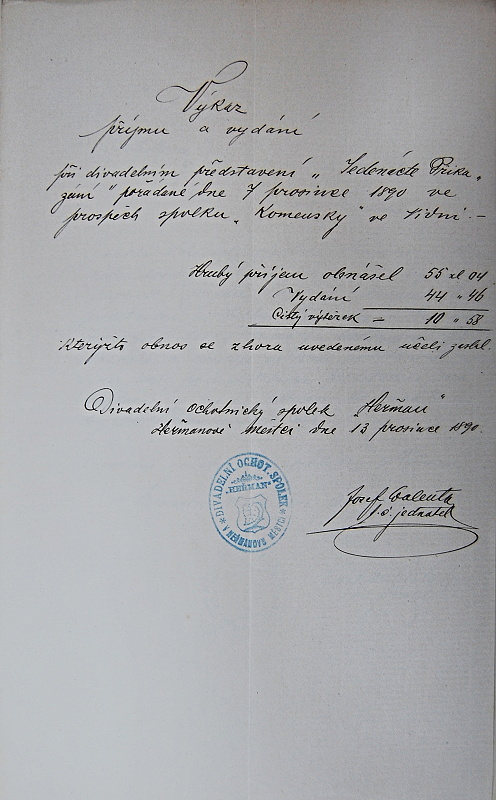 Výkaz
příjmu a vydání
při divadelním představení „Jedenácte Přika„
zání" pořádané dne 7 prosince 1890 ve
prospěch spolku „Komenský" ve Vídni. –
Hrubý příjem obnášel 55 zl 04
Vydání 44 „ 46
Čistý výtěžek – 10 „ 58
Kterýžto obnos se zhora uvedenému účeli zaslal.
Divadelní ochotnický spolek „Heřman"
Heřmanově Městci dne 13 prosince 1890.
DIVADELNÍ OCHOT. SPOLEK
„HEŘMAN"
V HEŘMANOVĚ MĚSTCI
Josef Valenta
jednatel